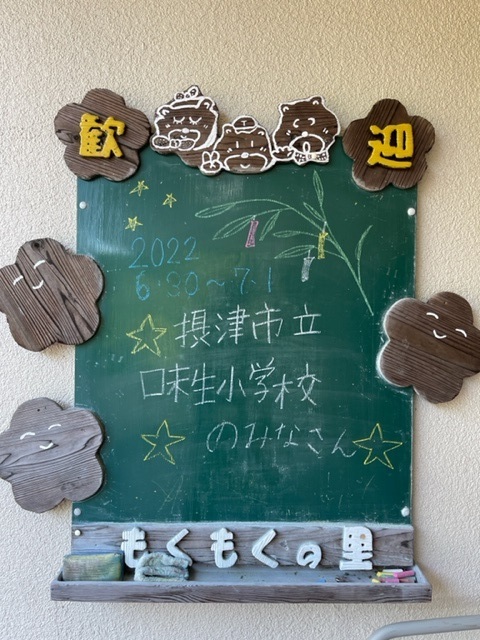 歓迎
2022
6.30～7.1
摂津市立
味生小学校
のみなさん
もくもくの里